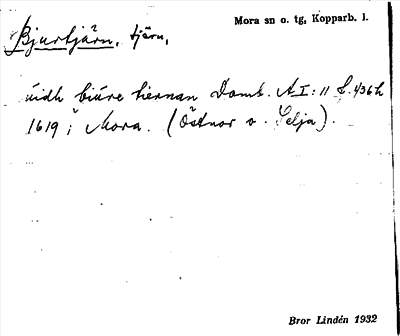 Bjurtjärn, tjärn,
Mora sn o. tg, Kopparb. l.
úidh biúre tiernan Domb. A I: 11 f. 436 h
1619 i Mora. (Östnor o. Selja).
Bror Lindén 1932